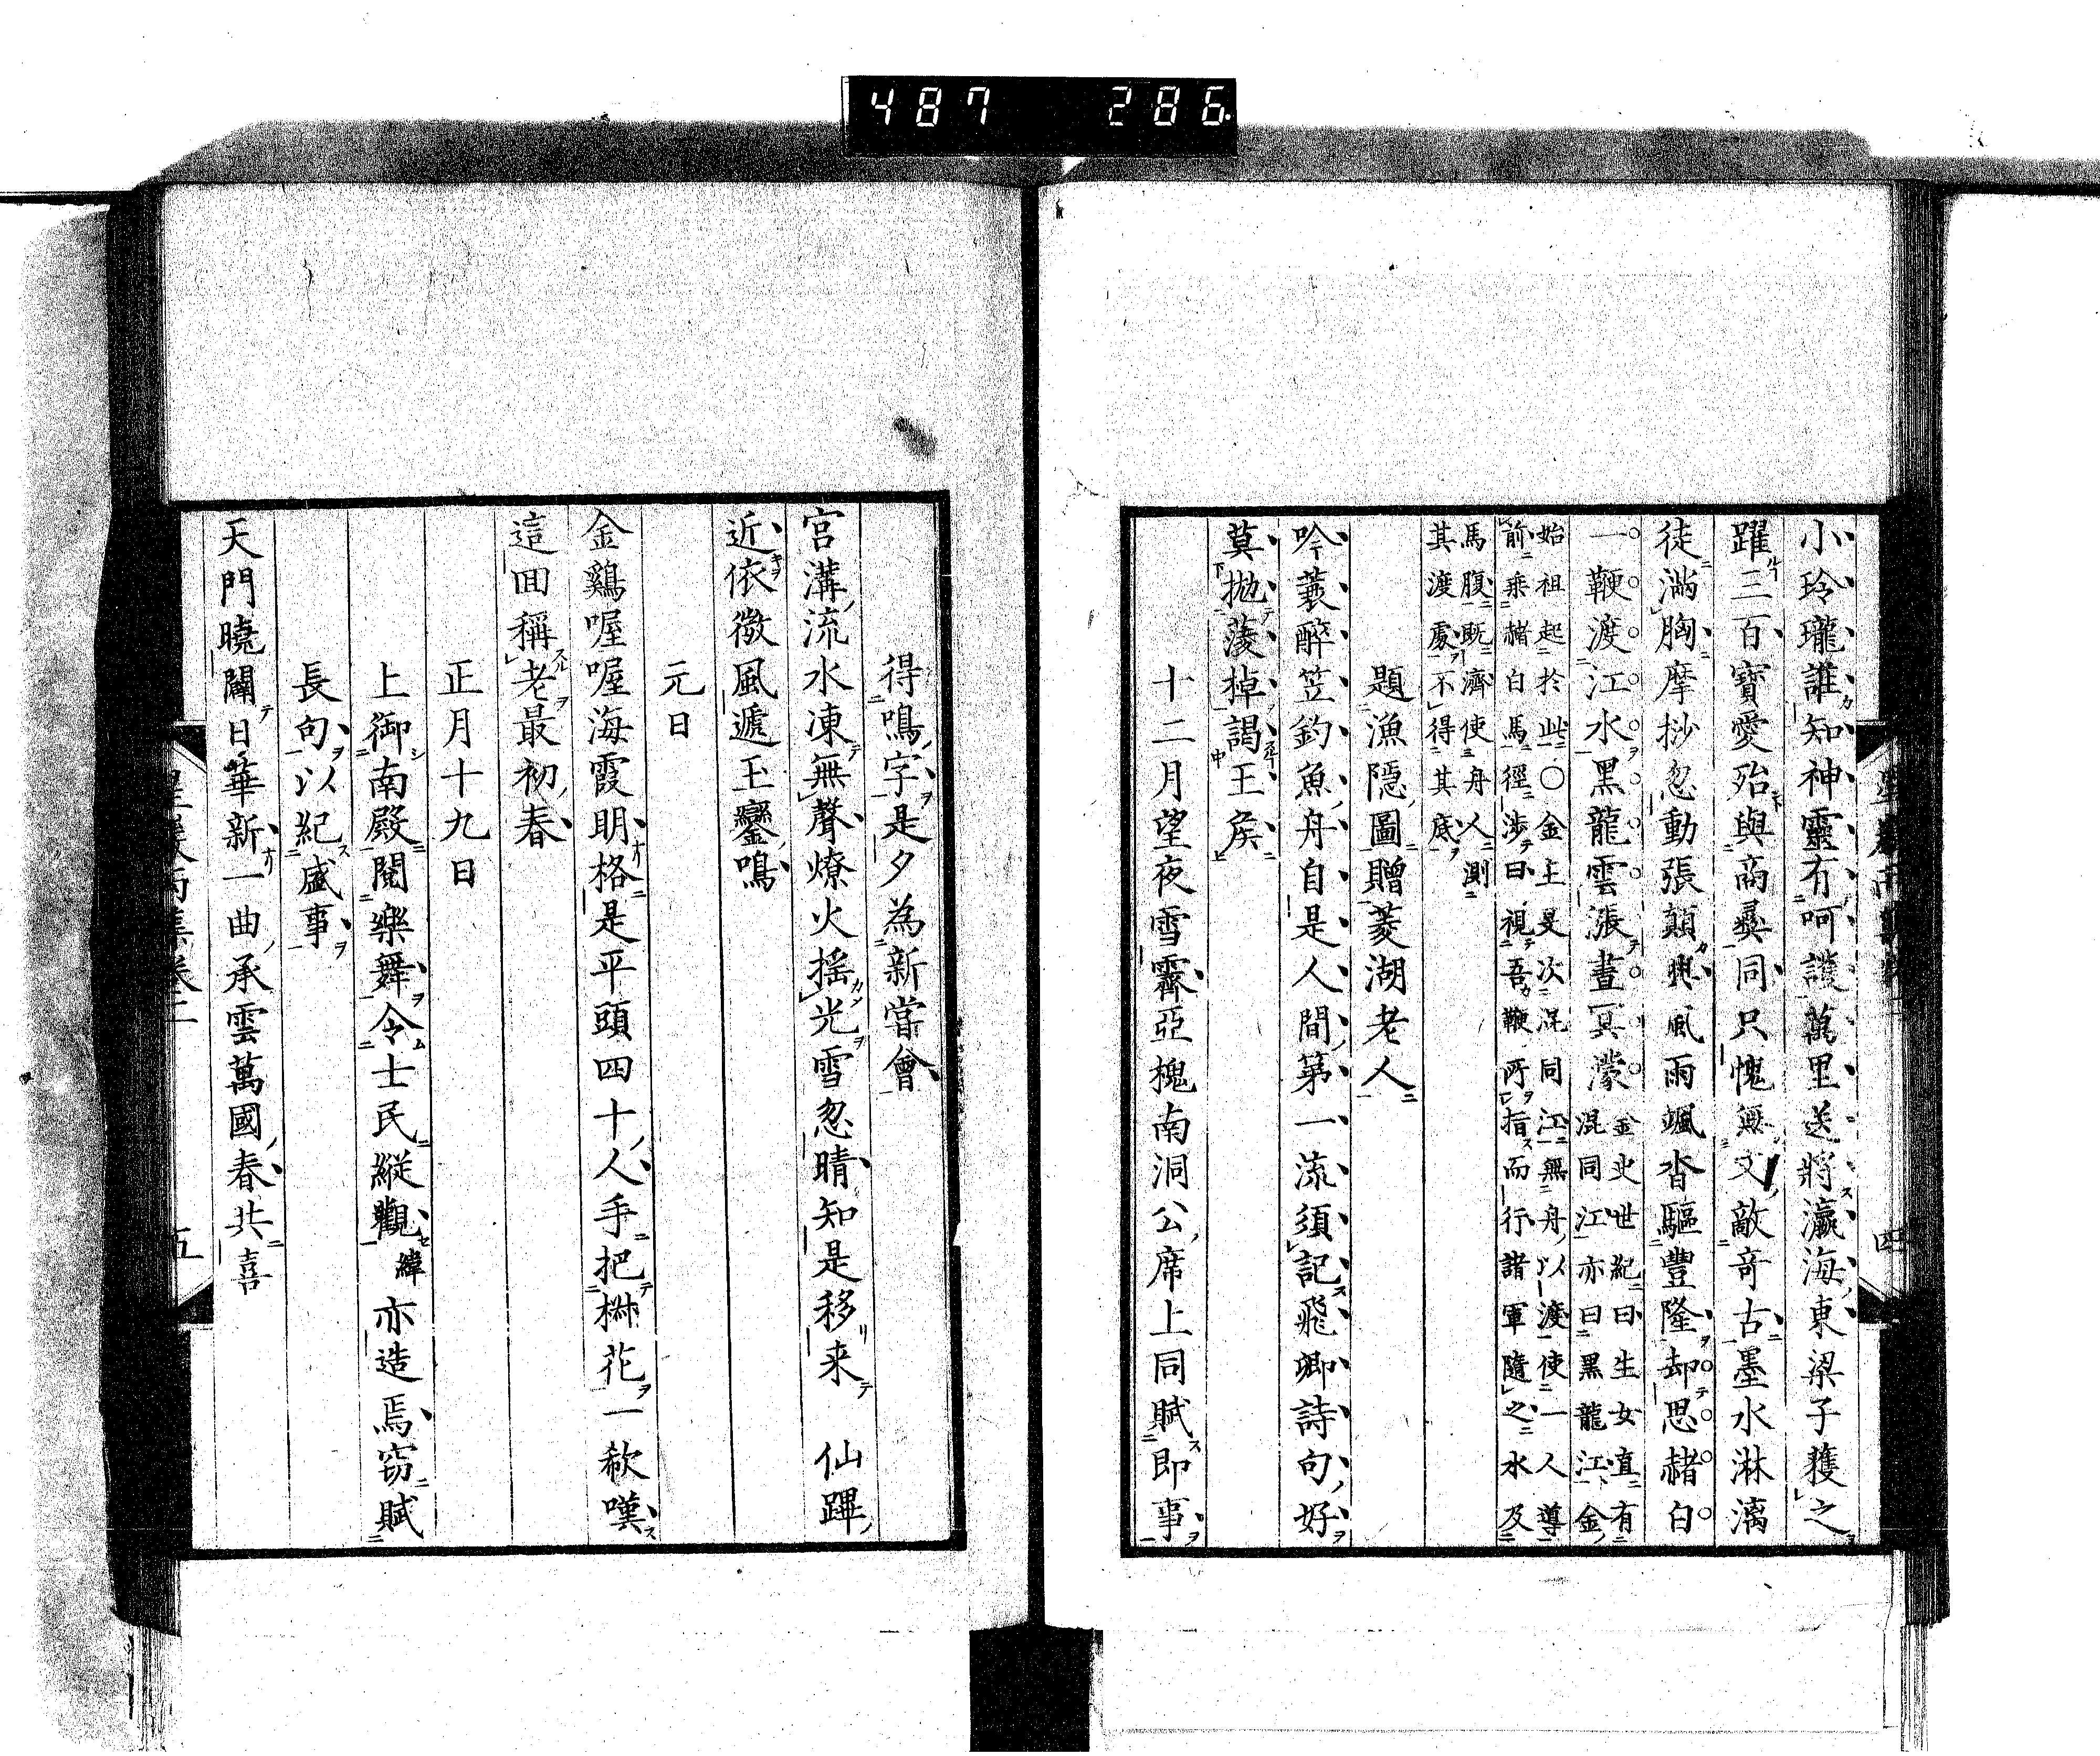 487 286
小玲瓏誰知神靈有呵護萬里送將瀛海東梁子獲之
躍三百寶愛殆與商彝同只愧無文敵奇古墨水淋漓
徒滿胸摩挱忽動張顛興風雨颯沓驅豐隆却思赭白
一鞭渡江水黑龍雲漲晝冥濛金史世紀曰生女直有混同江亦曰黑龍江金
始祖起於此〇金主旻次混同江無舟以渡使一人導
前乘赭白馬徑涉曰視吾鞭所指而行諸軍隨之水及
馬腹既濟使舟人測
其渡處不得其底
題漁隱圖贈菱湖老人
吟蓑醉笠釣魚舟自是人間第一流須記飛卿詩句好
莫拋菱棹謁王矦
十二月望夜雪霽亞槐南洞公席上同賦即事
得鳴字是夕為新嘗會
宮溝流水凍無聲燎火搖光雪忽晴知是移来仙蹕
近依微風遞玉鸞鳴
元日
金鷄喔喔海霞明格是平頭四十人手把椒花一欷嘆
這回稱老最初春
正月十九日
上御南殿閱樂舞令士民縱觀緯亦造焉窃賦
長句以紀盛事
天門曉闢日華新一曲承雲萬國春共喜
五